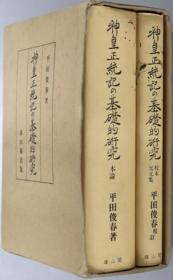 平田俊春著
神皇正統記の基礎的研究
雄山閣出版
神皇正統記の基礎的研究
本論
平田俊春著
神皇正統記の基礎的研究
校本
元元集
平田俊春校訂
雄山閣